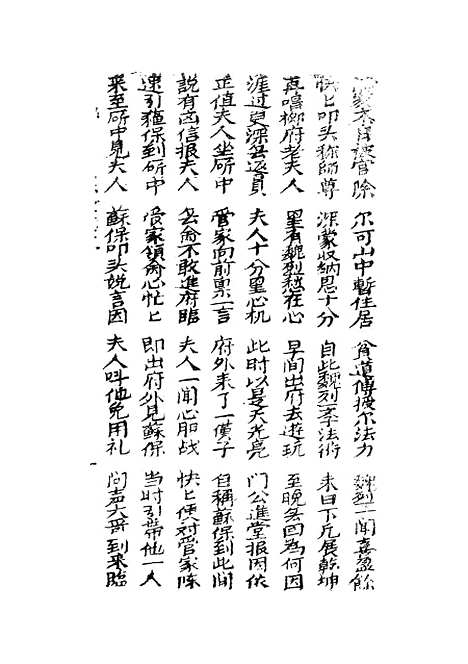 家本自被官除 尔可山中暫住居 貧道傳授尔法力 魏烈一聞喜盈餘
快匕叩头称師尊 深蒙收納恩十分 自此魏烈李法術 未曰下凡展乾坤
再唱柳府老夫人 里有魏烈愁在心 早间出府去遊玩 至晚回為何因
漄过更深返員 夫人十分里心机 此时以是天光亮 门公進堂报因依
正值夫人坐所中 管家向前禀一言 府外来了一漢子 自稱蘇保到此间
說有凶信报夫人 不敢進府臨 夫人一聞心胆战 快匕便对管家陈
速引蘓保到所中 管家領俞心忙匕 即出府外見蘇保 当时引帶他一人
来至所中見夫人 蘇保叩头說言因 夫人叫他免用礼 问声大哥到来臨